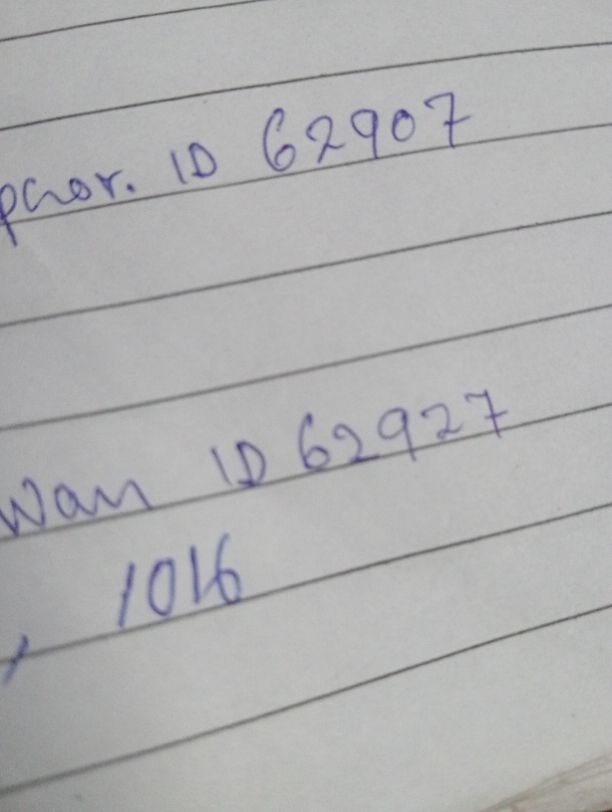 phor. ID 62907
Wan ID 62927
, 1016